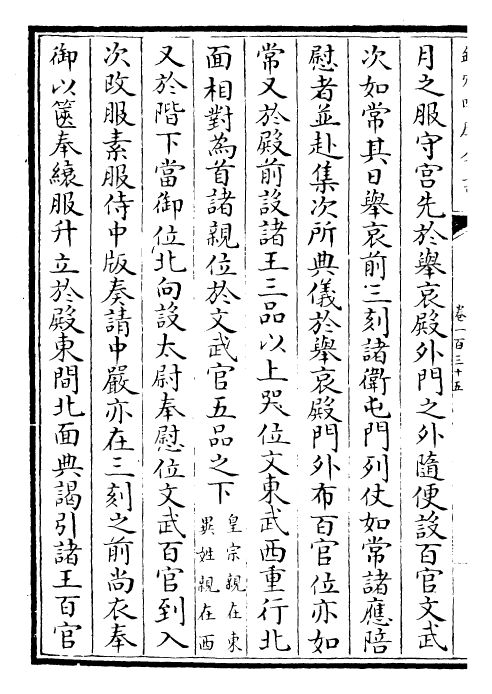 卷一百三十五
月之服守宫先於舉哀殿外門之外隨便設百官文武
次如常其日舉哀前三刻諸衛屯門列仗如常諸應陪
慰者並赴集次所典儀於舉哀殿門外布百官位亦如
常又於殿前設諸王三品以上哭位文東武西重行北
面相對為首諸親位於文武官五品之下皇宗親在東異姓親在西
又於階下當御位北向設太尉奉慰位文武百官到入
次改服素服侍中版奏請中嚴亦在三刻之前尚衣奉
御以篋奉縗服升立於殿東間北面典謁引諸王百官